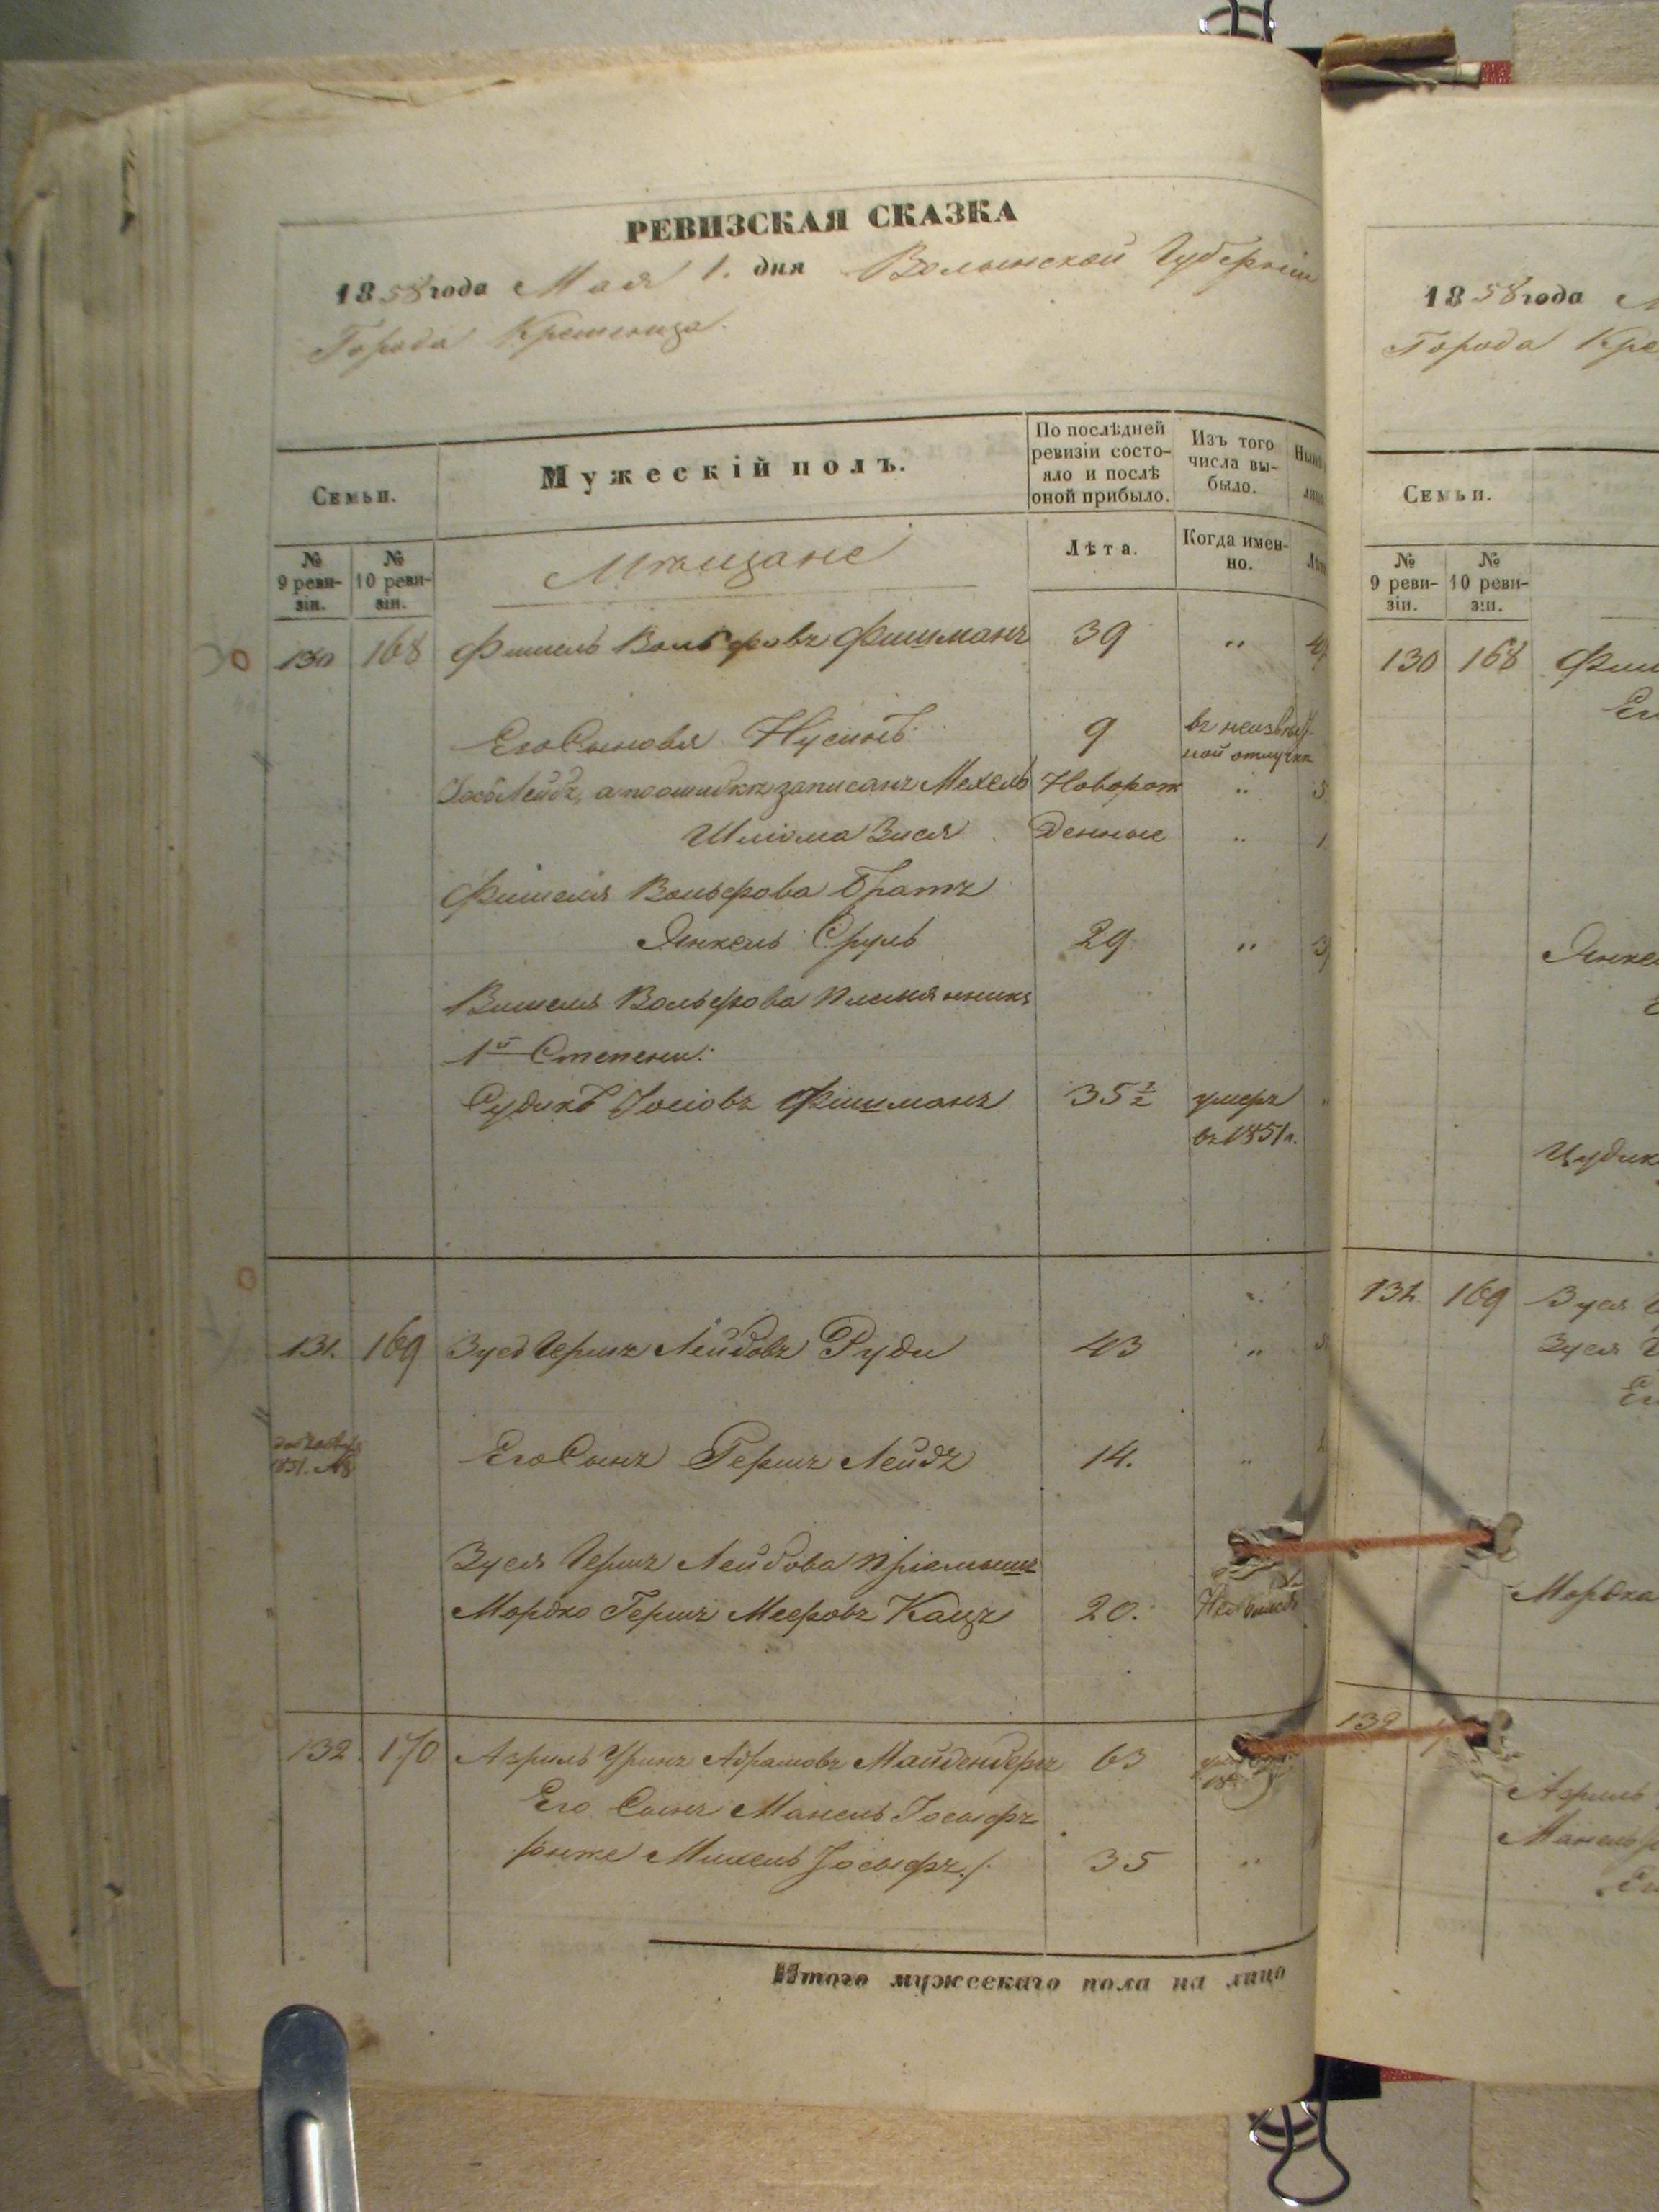 РЕВИЗСКАЯ СКАЗКА
1858 года Мая 1. дня Волынской Губернии
Города Кременца.
Семьи.
Мужескій полъ.
По послѣдней ревизіи состо-
яло и послѣ оной прибыло.
Изъ того числа вы-
было.
№ 9 реви-
зіи.
№ 10 реви-
зіи.
Мѣщане
Лѣта.
Когда имен-
но.
130 168 Фишель Вольфовъ Фишманъ 39 „
Его Сыновья Нусинъ 9 въ неизвѣст-
ной отлучкѣ
Лейбъ, а по ошибкѣ записанъ Мехель Новорож „
Шліома Зися денные „
Фишеля Вольфова Братъ
Янкель Сруль 29 „
Вишеля Вольфова племянникъ
1й Степени:
Судикъ Іосіовъ Фишманъ 35 ½ умеръ
въ 1851 г.
131. 169 Зуся Гершъ Лейбовъ Руди 43 „
1851. №
Его Сынъ Гершъ Лейбъ 14. „
Зуся Гершъ Лейбова пріемышъ
Мордко Гершъ Мееровъ Кацъ 20.
132. 170 Азриль Абрамовъ Майденбергъ 63
Его Сынъ Манель Іосьифъ
онже Михель Іосьифъ./. 35 „
Итого мужескаго пола на лицо
1858 года
Города Кре
Семьи.
№ 9 реви-
зіи.
№ 10 реви-
зіи.
130 168 Фиш
Янке
Цудик
131. 169 Зуся
Зуся
Мордка
132
Азриль
Манель